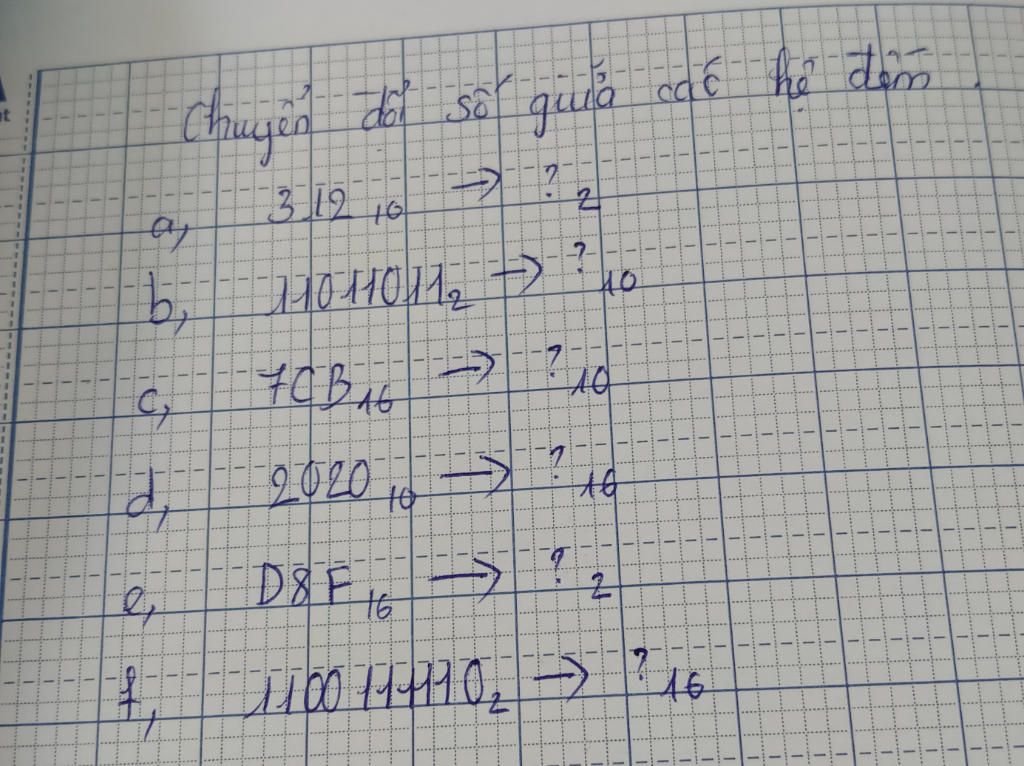 Chuyển đổi số giuã các hệ đếm.
a, 312₁₀ → ?₂
b, 11011011₂ → ?₁₀
c, 7CB₁₆ → ?₁₀
d, 2020₁₀ → ?₁₆
e, D8F₁₆ → ?₂
f, 1100111110₂ → ?₁₆